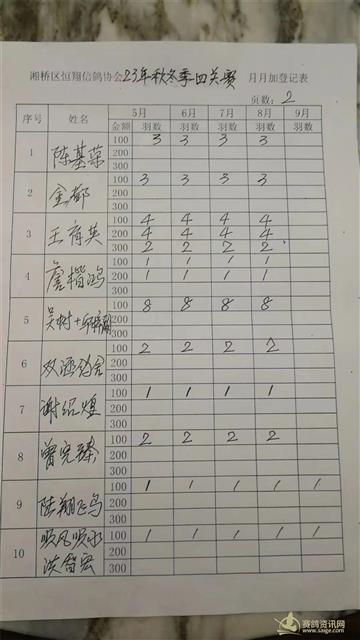 湘桥区恒翔信鸽协会23年秋冬季四关赛 月月加登记表
页数：2
序号 姓名 5月 6月 7月 8月 9月
金额 羽数 羽数 羽数 羽数 羽数
1 陈基荣 100 3 3 3 3
200
300
2 金都 100 3 3 3 3
200
300
3 王育英 100 4 4 4 4
200 4 4 4 4
300 2 2 2 2
4 詹楷鸿 100 1 1 1 1
200 1 1 1 1
300
5 吴树+ 100 8 8 8 8
200
300
6 双涵鸽舍 100 2 2 2 2
200
300
7 谢绍煌 100 1 1 1 1
200
300
8 曾 100 2 2 2 2
200
300
9 陆翔飞鸟 100 1 1 1 1 1
200
300
10 顺风顺水 100 1 1 1 1 1
洪 宏 200
300
赛鸽资讯网
www.saige.com